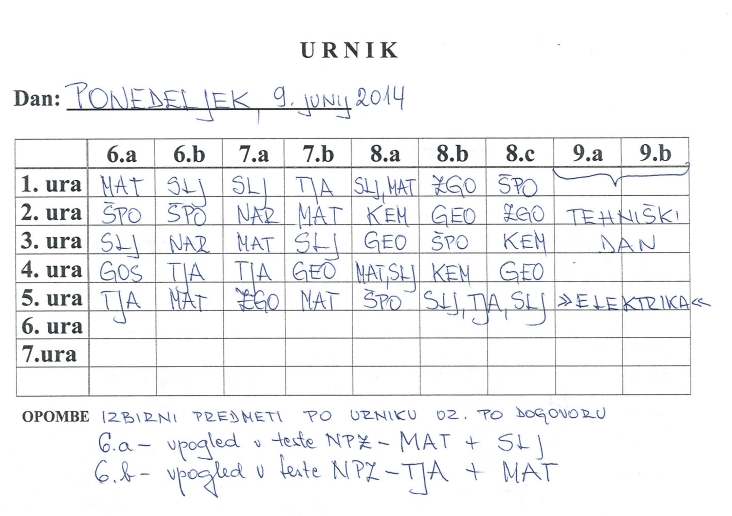 URNIK
Dan: PONEDELJEK, 9. junij 2014
6.a 6.b 7.a 7.b 8.a 8.b 8.c 9.a 9.b
1. ura MAT SLJ SLJ TJA SLJ,MAT ZGO ŠPO
2. ura ŠPO ŠPO NAR MAT KEM GEO ZGO TEHNIŠKI
3. ura SLJ NAR MAT SLJ GEO ŠPO KEM DAN
4. ura GOS TJA TJA GEO MAT,SLJ KEM GEO
5. ura TJA MAT ZGO MAT ŠPO SLJ, TJA, SLJ »ELEKTRIKA«
6. ura
7.ura
OPOMBE IZBIRNI PREDMETI PO URNIKU OZ. PO DOGOVORU
6.a - vpogled v teste NPZ - MAT + SLJ
6.b - vpogled v teste NPZ - TJA + MAT